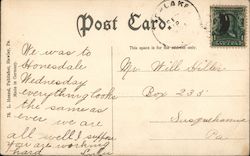 LAKE
Post Card.
This space is for the address only.
We was to
Honesdale
Wednesday
everything looks
the same as
ever we are
all well I suppose
you are working
hard
Mr Will Hiller
Box 235
Susquehanna
Pa